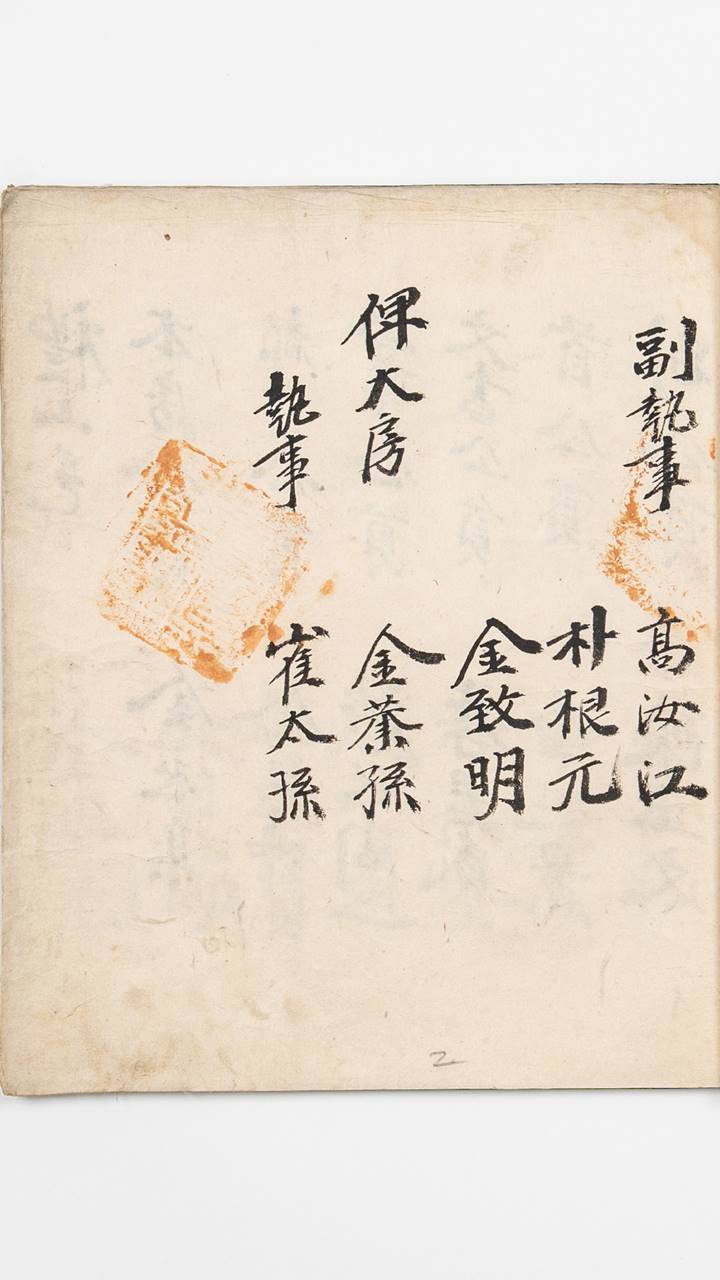 副執事 高汝江
朴根元
金致明
俾大房 金蓁孫
執事 崔太孫
2